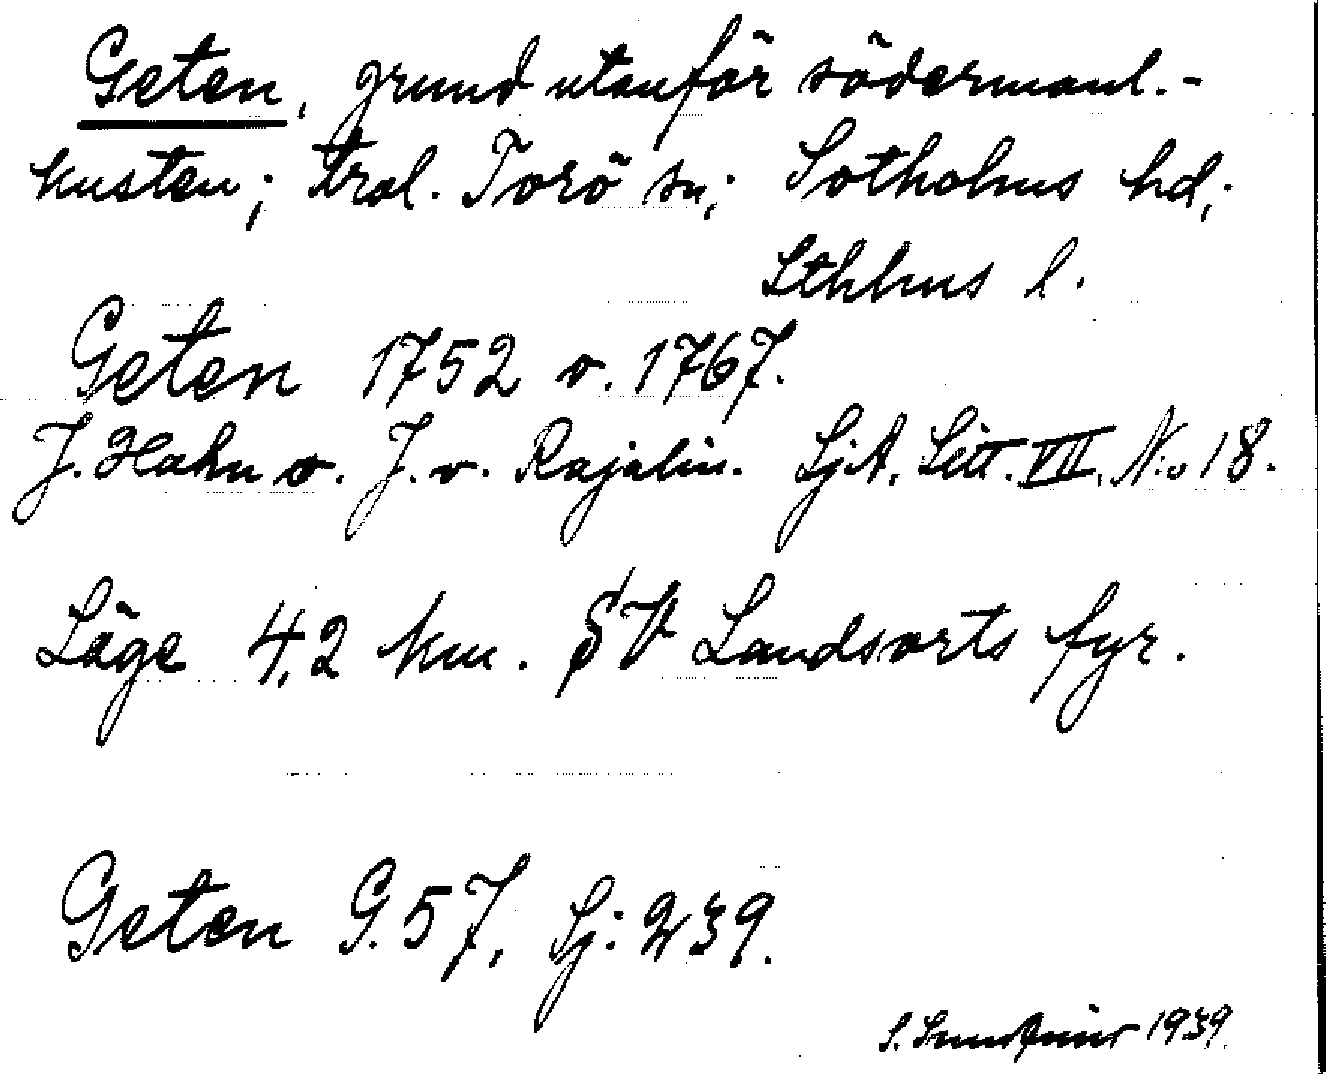 Geten, grund utanför södermanl.-
kusten; tral. Torö sn; Sotholms hd;
Sthlms l.
Geten 1752 o. 1767.
J. Hahn o. J. v. Rajalin. SjA. Litt. VII. N:o 18.
Läge 4,2 km. SV Landsorts fyr.
Geten G. 57, Sj: 239.
S. 1939.